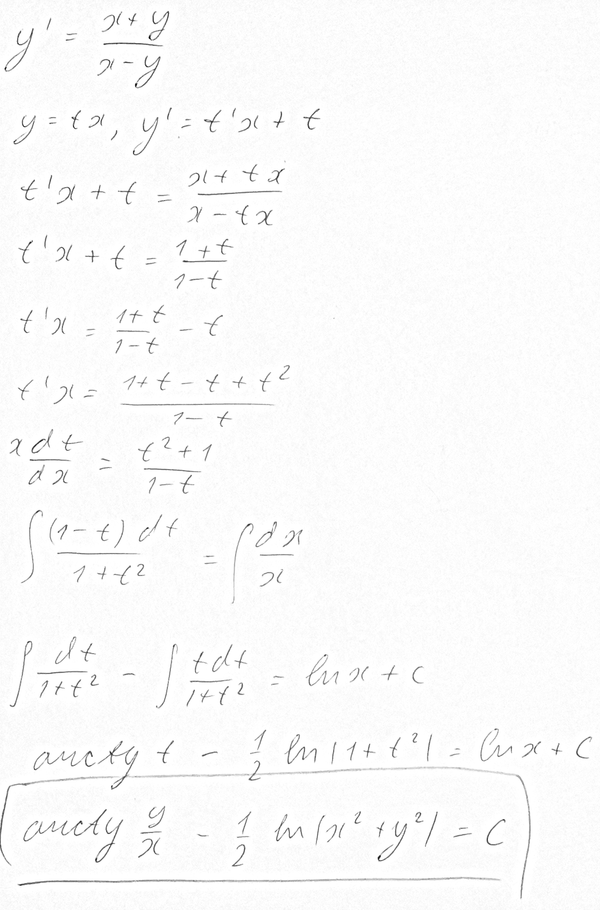 y' = \frac{x+y}{x-y}
y = tx, y' = t'x + t
t'x + t = \frac{x+tx}{x-tx}
t'x + t = \frac{1+t}{1-t}
t'x = \frac{1+t}{1-t} - t
t'x = \frac{1+t-t+t^2}{1-t}
\frac{x dt}{dx} = \frac{t^2+1}{1-t}
\int \frac{(1-t) dt}{1+t^2} = \int \frac{dx}{x}
\int \frac{dt}{1+t^2} - \int \frac{t dt}{1+t^2} = ln x + C
arctg t - \frac{1}{2} ln |1+t^2| = ln x + C
arctg \frac{y}{x} - \frac{1}{2} ln |x^2+y^2| = C